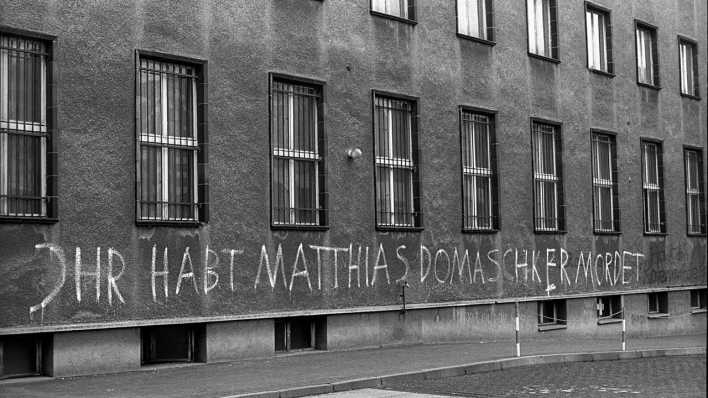 IHR HABT MATTHIAS DOMASCHK ERMORDET